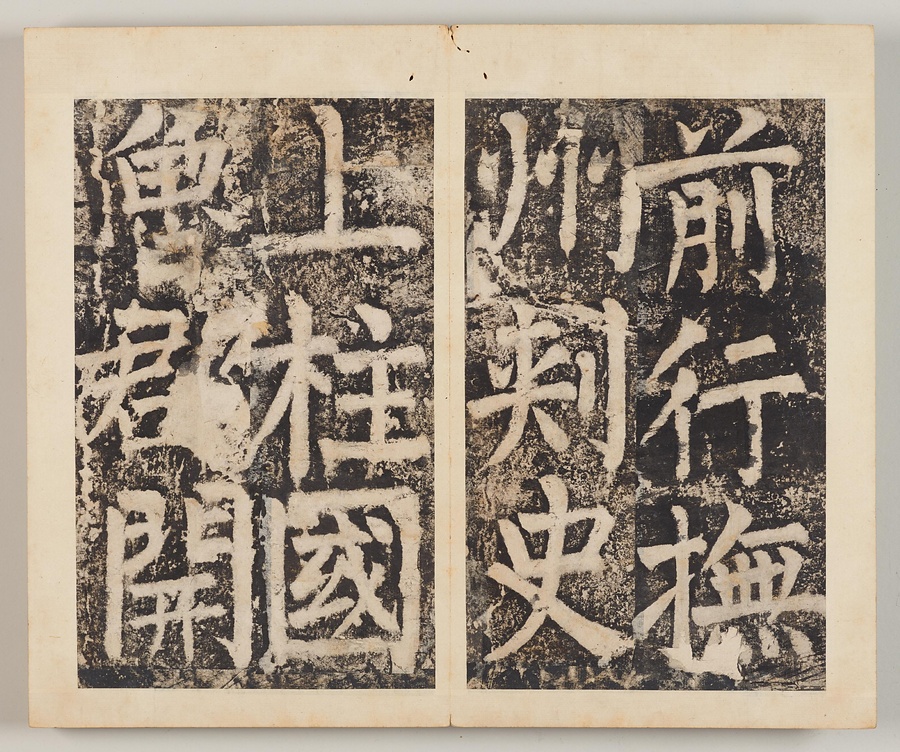 前行撫
州刾史
上柱國
魯郡開